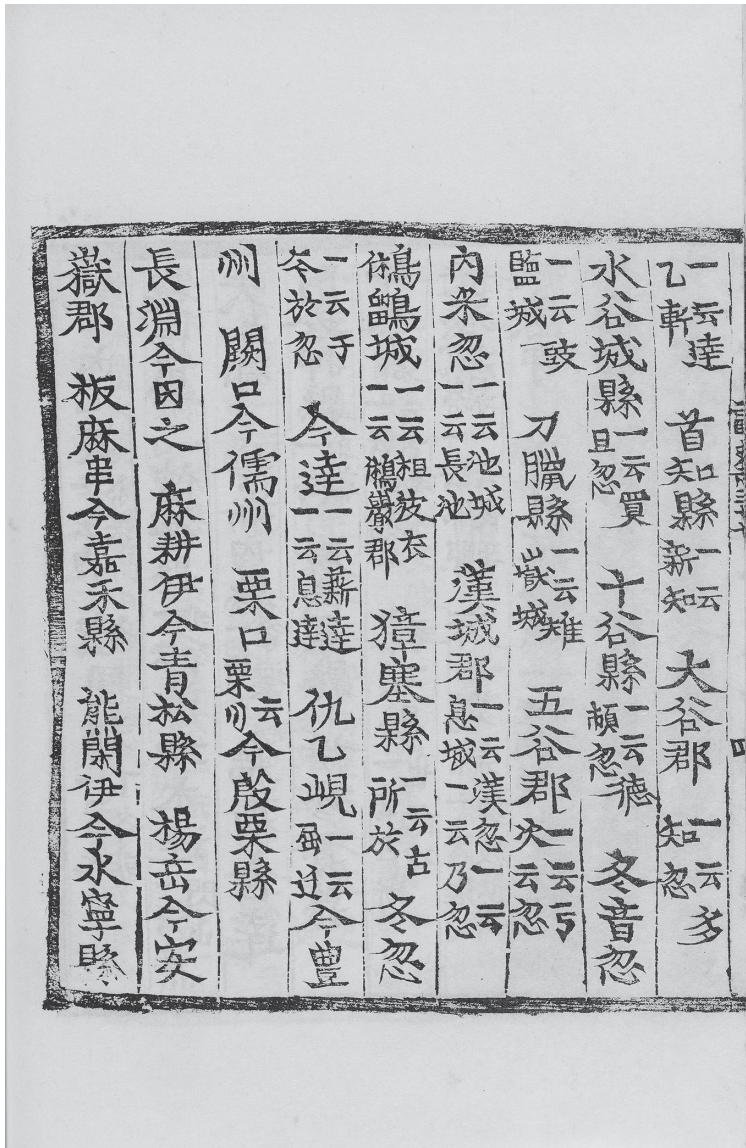 一云達乙斬 首知縣一云新知 大谷郡一云多知忽
水谷城縣一云買旦忽 十谷縣一云德頓忽 冬音忽
一云豉鹽城 刀臘縣一云雉嶽城 五谷郡一云弓次云忽
內米忽一云池城一云長池 漢城郡一云漢忽一云息城一云乃忽
鵂鶹城一云租波衣一云鵂巖郡 獐塞縣一云古所於 冬忽
一云于冬於忽 今達一云薪達一云息達 仇乙峴一云屈迁今豊
州 闕口今儒州 栗口云栗川今殷栗縣
長淵今因之 麻耕伊今青松縣 楊岳今安
嶽郡 板麻串今嘉禾縣 熊閑伊今水寧縣